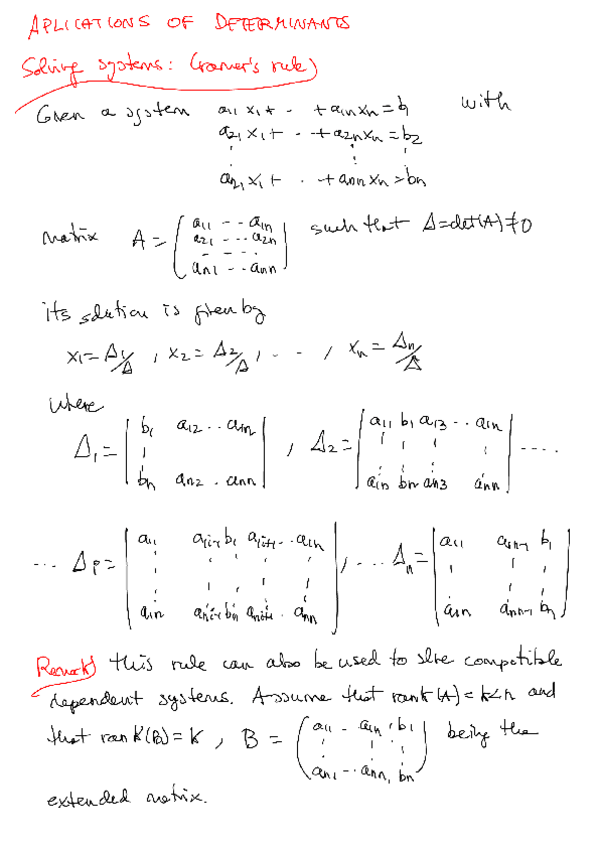 APLICATIONS OF DETERMINANTS
Solving systems: (Cramer's rule)
Given a system a11 x1 + - + a1n xn = b1 with
a21 x1 + - - + a2n xn = b2
an1 x1 + - - + ann xn = bn
matrix A = ( a11 - - a1n
a21 - - - a2n
- - - -
an1 - - ann ) such that Δ = det(A) ≠ 0
its solution is given by
x1 = Δ1/Δ , x2 = Δ2/Δ , - - - , xn = Δn/Δ
where
Δ1 = | b1 a12 .. a1n
bn an2 . ann | , Δ2 = | a11 b1 a13 .. a1n
a1n bn an3 ann | ....
... Δi = | a11 a1i-1 b1 a1i+1 .. a1n
a1n ani-1 bn ani+1 . ann | , ... Δn = | a11 a1n-1 b1
a1n ann-1 bn |
Remark) this rule can also be used to solve compatible
dependent systems. Assume that rank(A) = k < n and
that rank(B) = k , B = ( a11 - a1n , b1
an1 - - ann , bn ) being the
extended matrix.